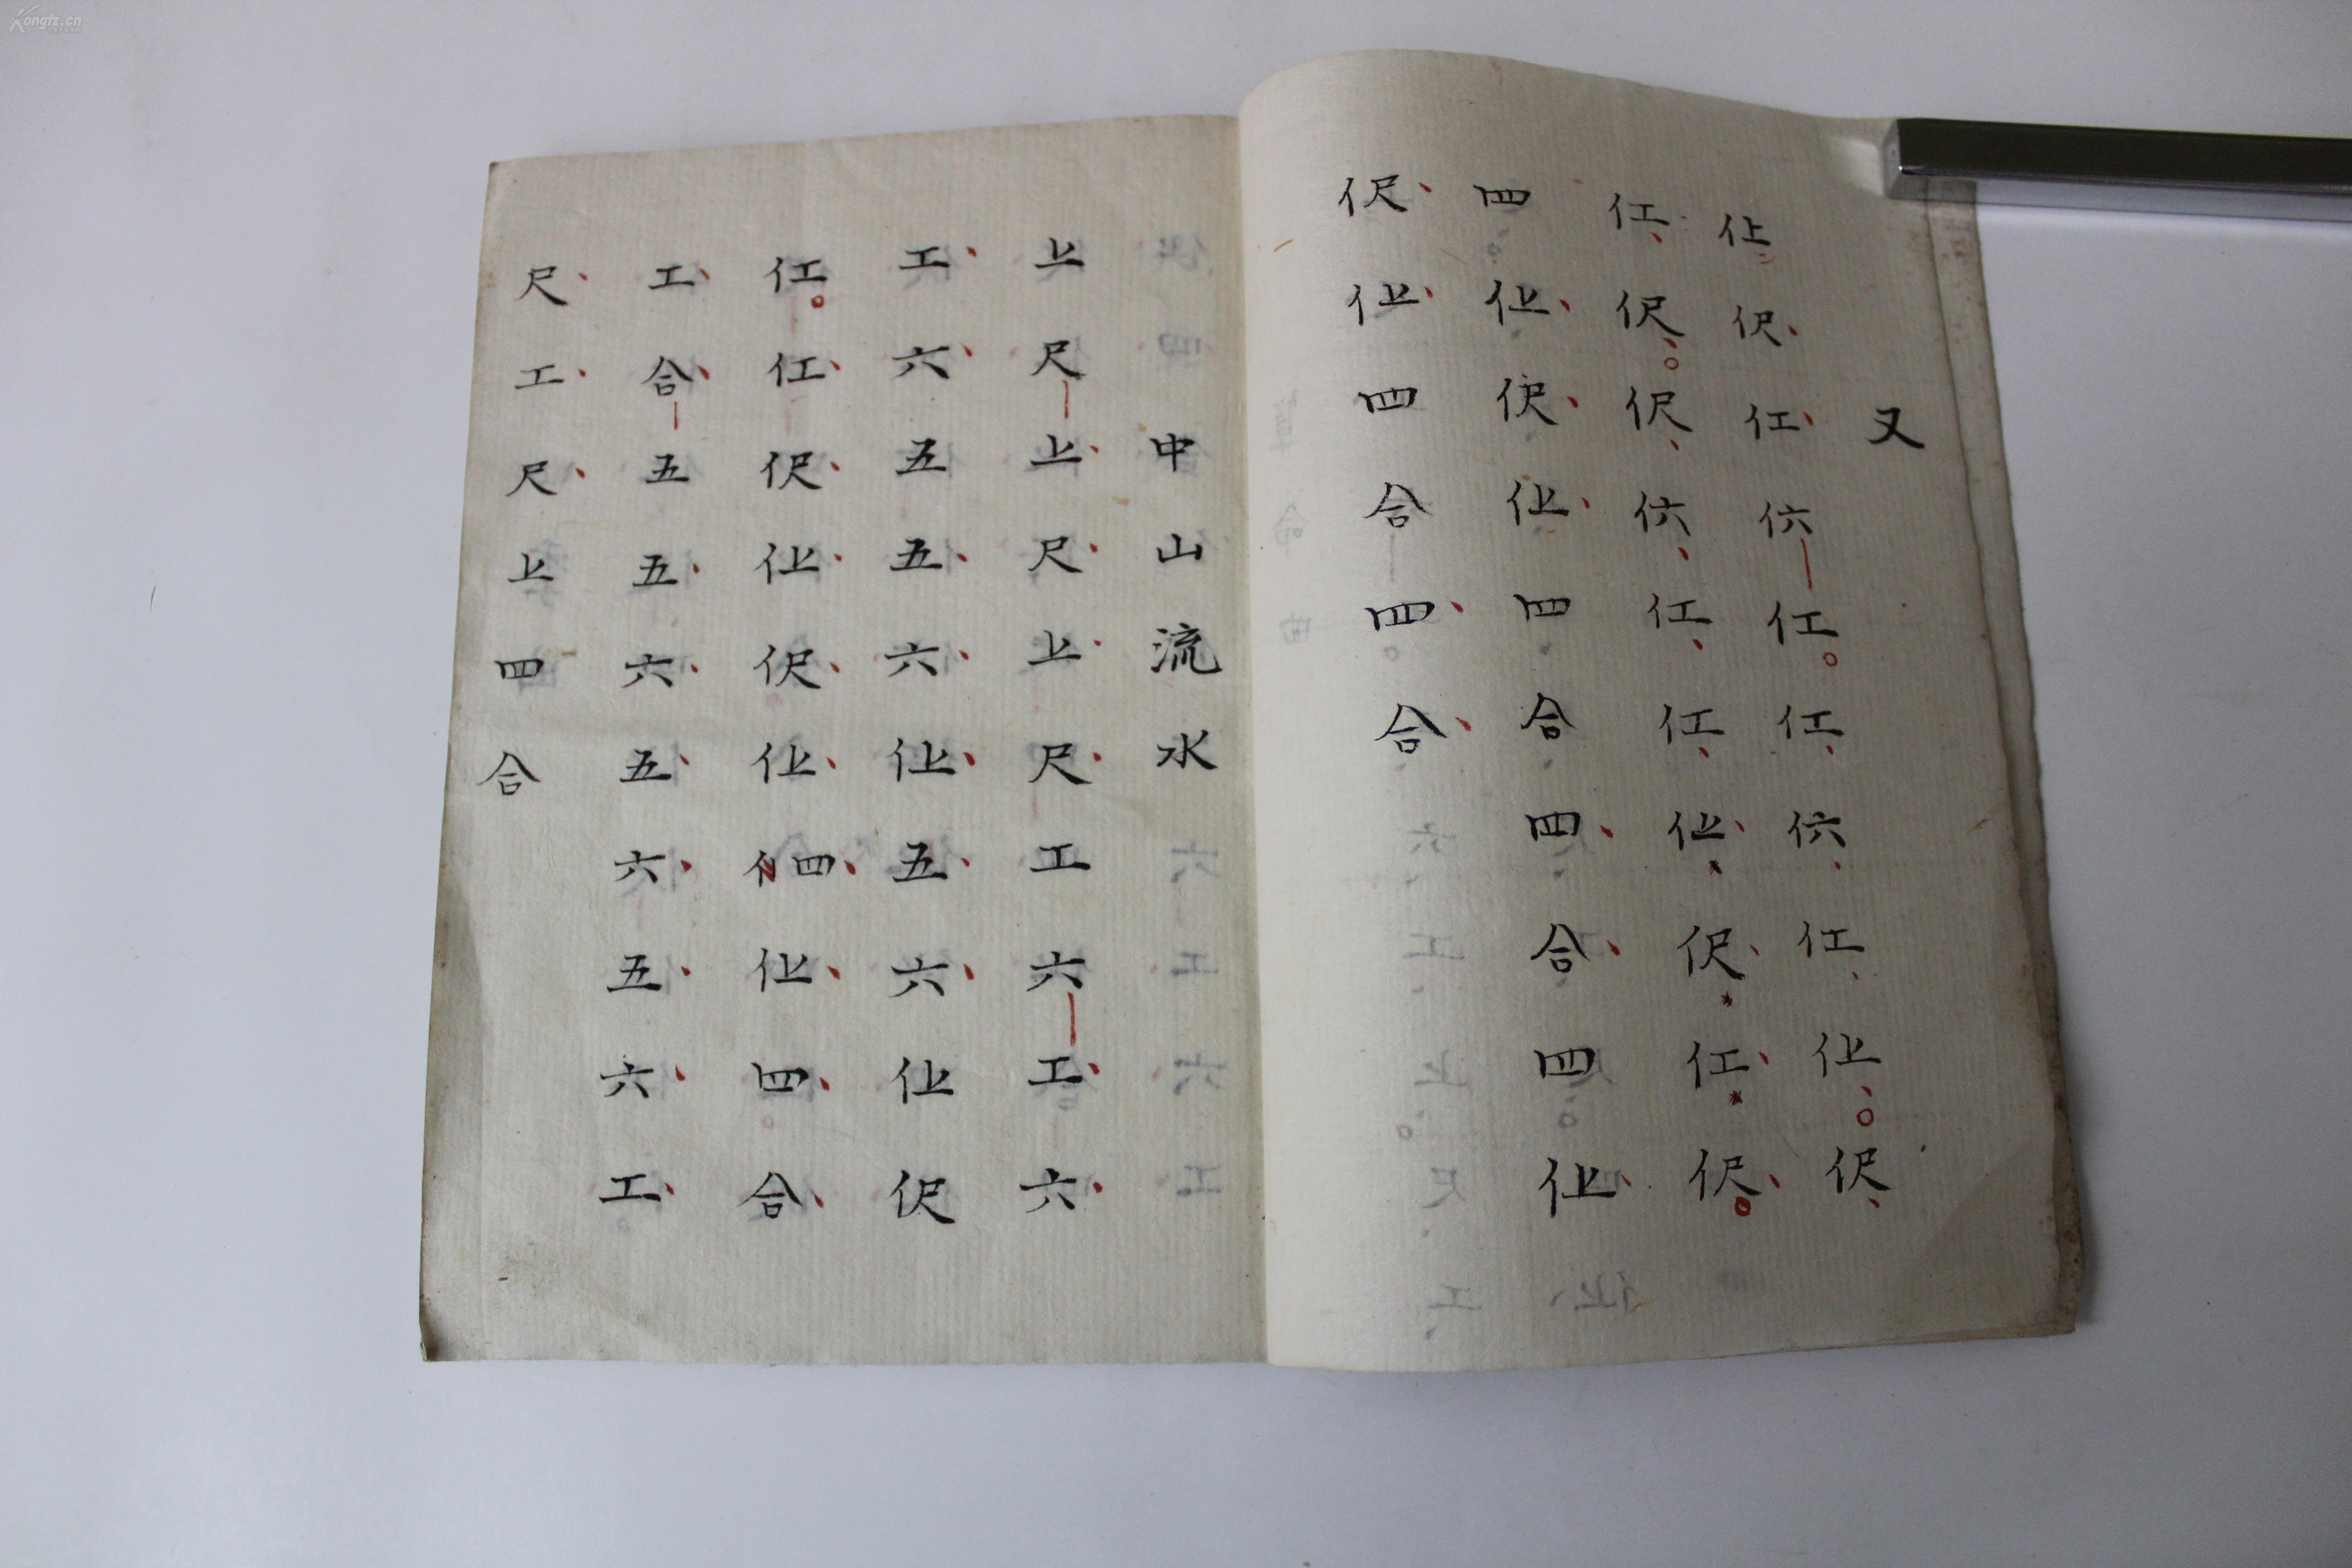 又
仩伬仜𠆾仜仜𠆾仜仩伬
仜伬伬𠆾仜仜仩伬仜伬
四仩伬仩四合四合四仩
伬仩四合四合
中山流水
上尺上尺上尺工六工六
工六五五六仩五六仩伬
仜仜伬仩伬仩四仩四合
工合五五六五六五六工
尺工尺上四合
Kongfz.cn